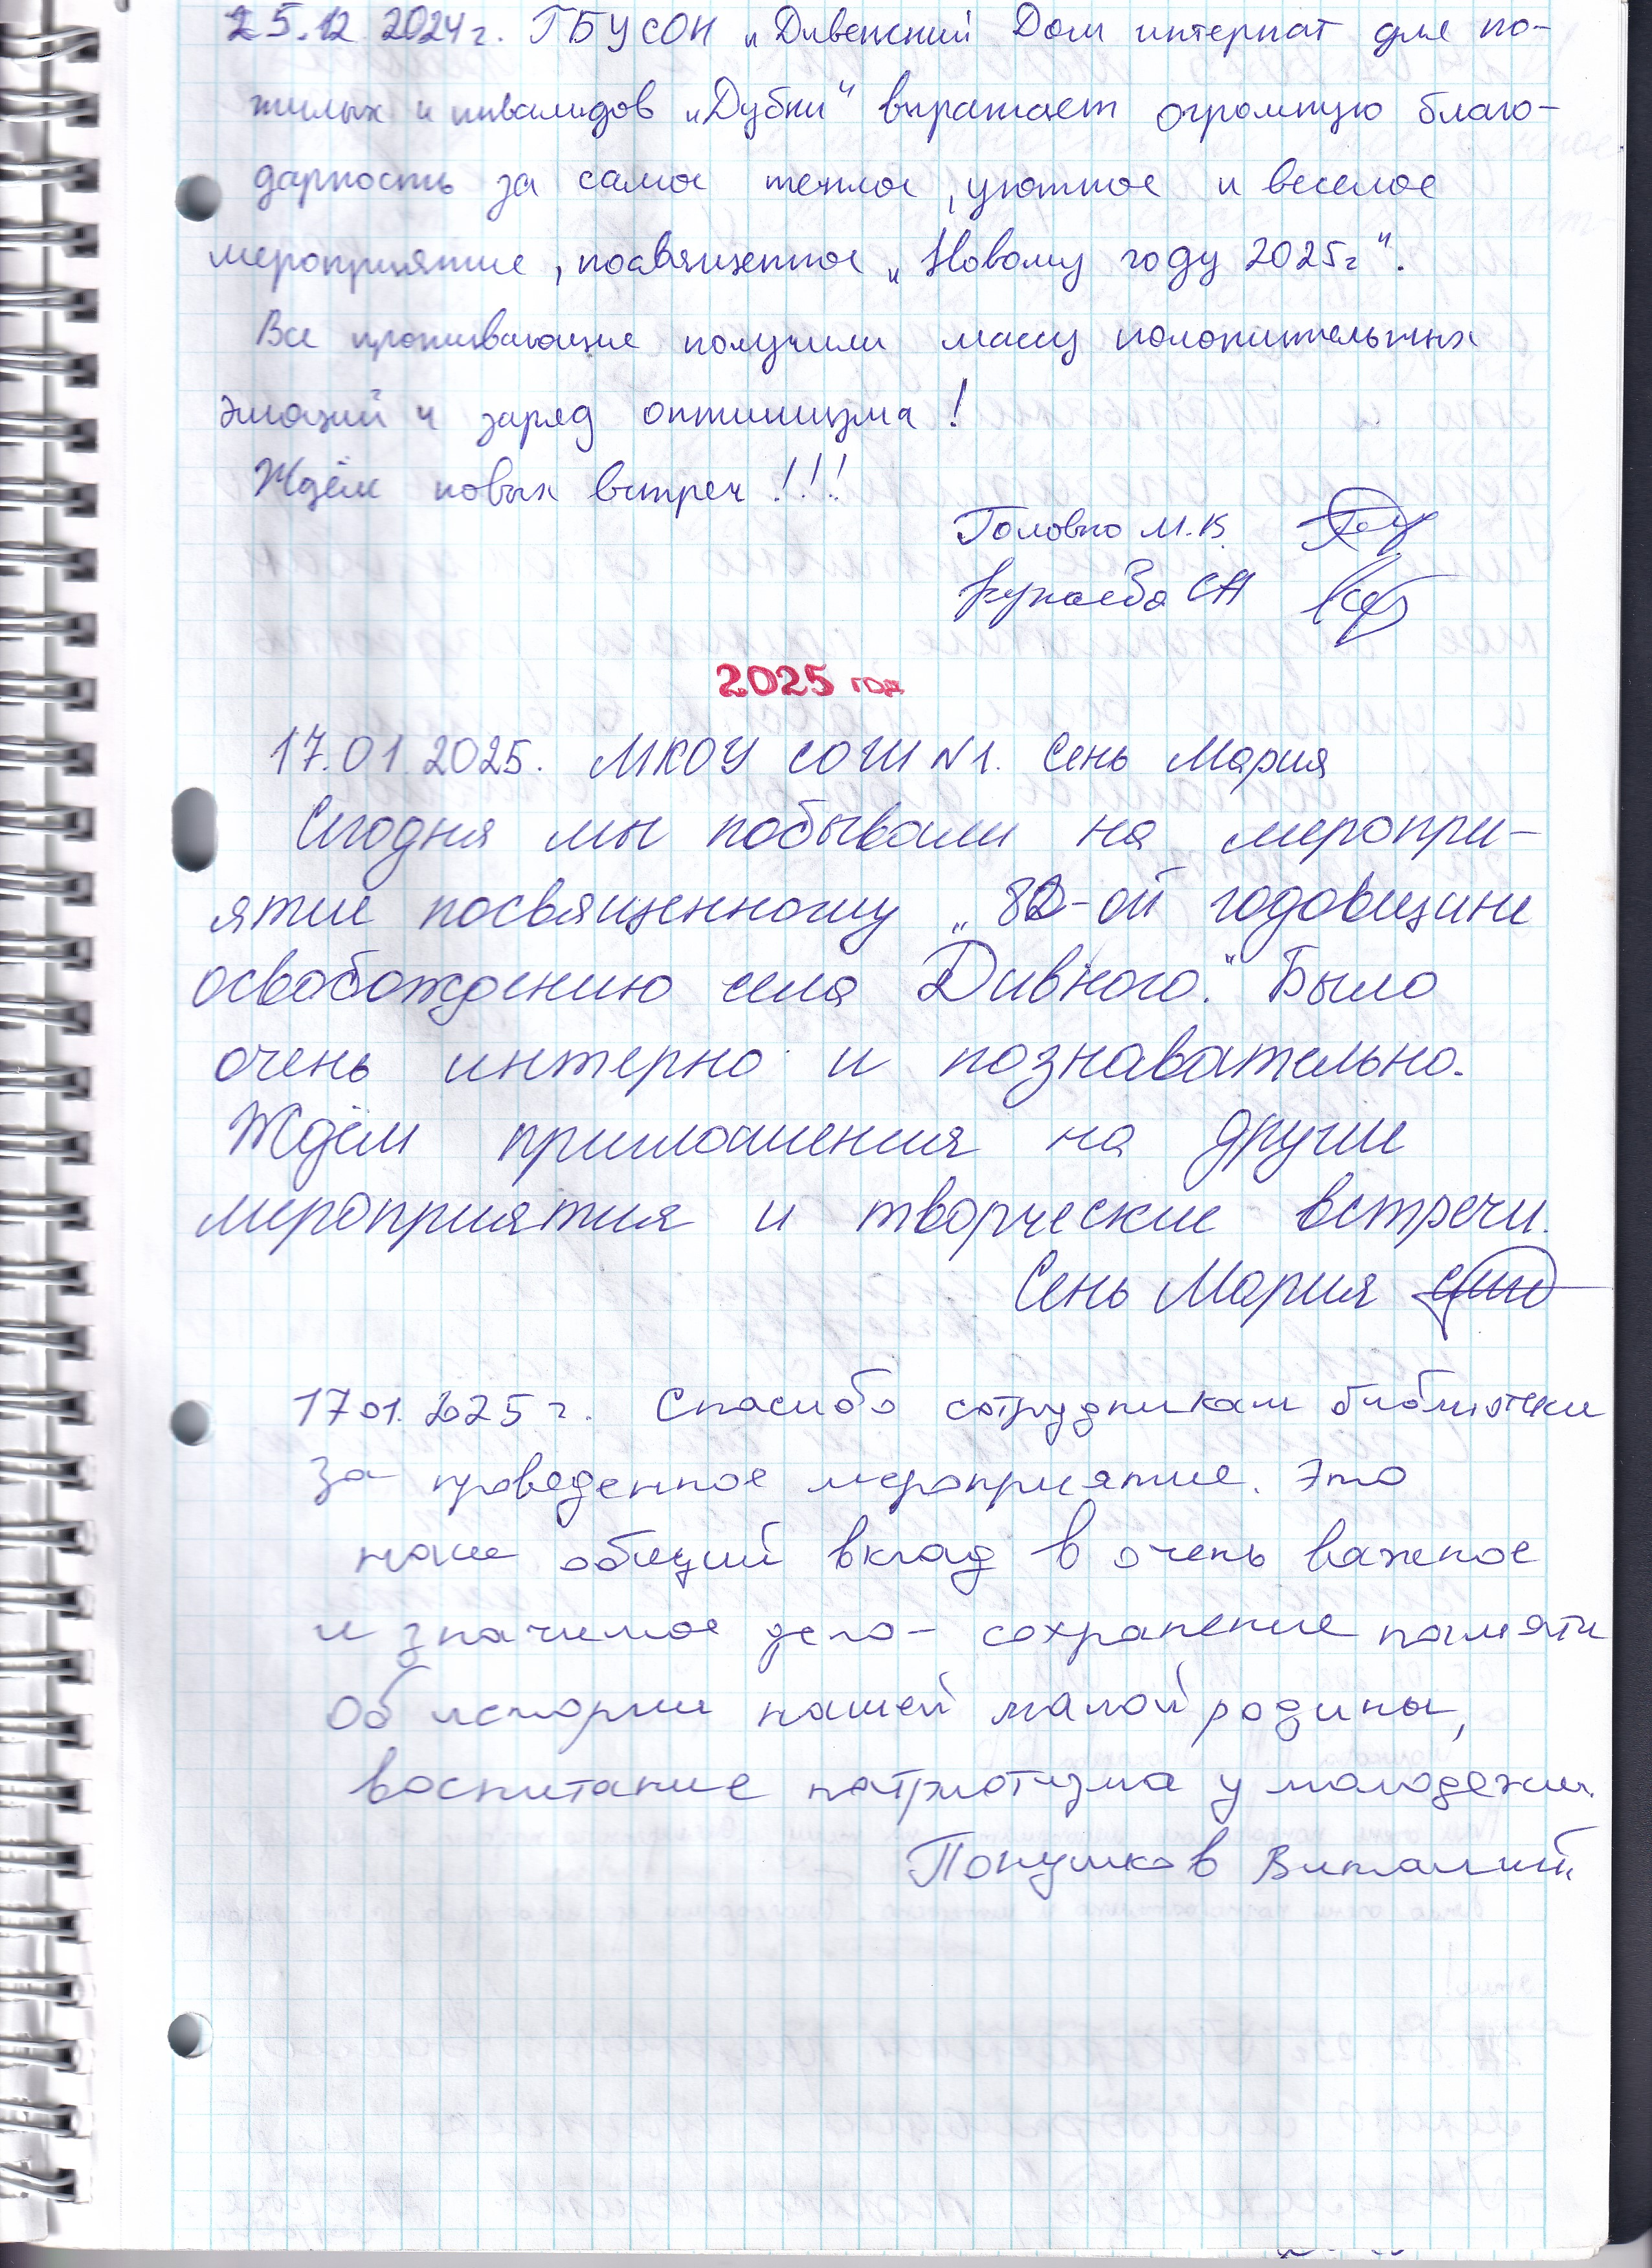 25.12.2024г. ГБУСОН „Дивенский Дом интернат для по-
жилых и инвалидов „Дубки“ выражает огромную благо-
дарность за самое теплое, уютное и веселое
мероприятие, посвященное „Новому году 2025г“.
Все проживающие получили массу положительных
эмоций и заряд оптимизма!
Ждём новых встреч!!!
Головко М.В.
СН
2025 год
17.01.2025. МКОУ СОШ №1. Сень Мария
Сегодня мы побывали на меропри-
ятие посвященному „82-ой годовщине
освобождению села Дивного." Было
очень интерно и познавательно.
Ждём приглошения на другие
мероприятия и творческие встречи.
Сень Мария
17.01.2025г. Спасибо сотрудникам библиотеки
за проведенное мероприятие. Это
наш общий вклад в очень важное
и значимое дело - сохранение памяти
об истории нашей малой родины,
воспитание патриотизма у молодежи.
Виталий